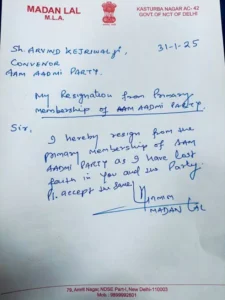 MADAN LAL
M.L.A.
KASTURBA NAGAR AC- 42
GOVT. OF NCT OF DELHI
Sh. ARVIND KEJRIWAL ji,
31-1-25
CONVENOR
AAM AADMI PARTY.
My Resignation from Primary
membership of AAM AADMI PARTY.
Sir,
I hereby resign from the
primary membership of AAM
AADMI PARTY as I have lost
faith in you and the Party.
Pl. accept the same.
MADAN LAL
Amrit Nagar, NDSE Part-I, New Delhi-110003